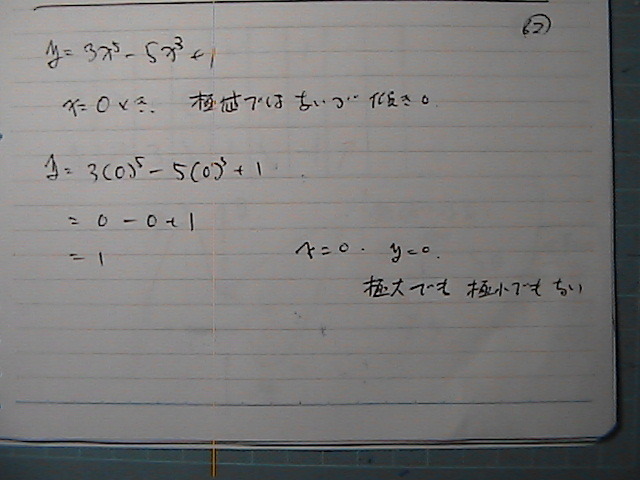 62
y = 3x⁵ - 5x³ + 1
x = 0 のとき. 極値ではないが 傾き 0.
y = 3(0)⁵ - 5(0)³ + 1
= 0 - 0 + 1
= 1
x = 0. y = 0.
極大でも 極小でも ない